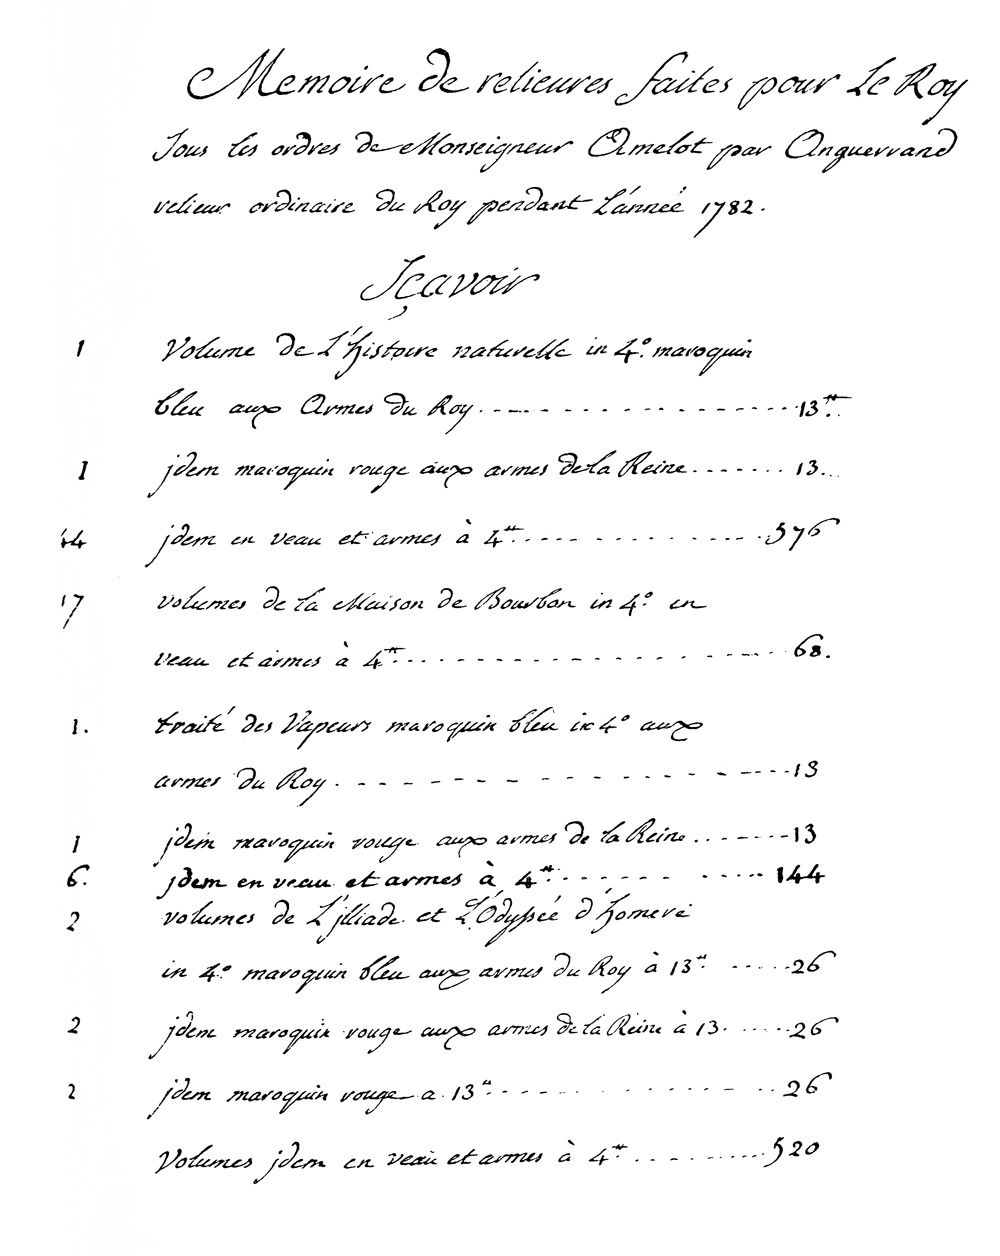 Memoire de relieures faites pour Le Roy
Sous les ordres de Monseigneur Amelot par Anguerrand
relieur ordinaire du Roy pendant L'année 1782.
Sçavoir
1 Volume de L'histoire naturelle in 4º. maroquin
bleu aux Armes du Roy 13.tt
1 jdem maroquin rouge aux armes de la Reine 13
44 jdem en veau et armes à 4tt 576
17 volumes de la Maison de Bourbon in 4º en
veau et armes à 4tt 68.
1. traité des Vapeurs maroquin bleu in 4º aux
armes du Roy 13
1 jdem maroquin rouge aux armes de la Reine 13
6. jdem en veau et armes à 4tt 144
2 volumes de L'jlliade et L'Odyssée d'homere
in 4º maroquin bleu aux armes du Roy à 13tt 26
2 jdem maroquin rouge aux armes de la Reine à 13. 26
2 jdem maroquin rouge a 13tt 26
Volumes jdem en veau et armes à 4tt 520